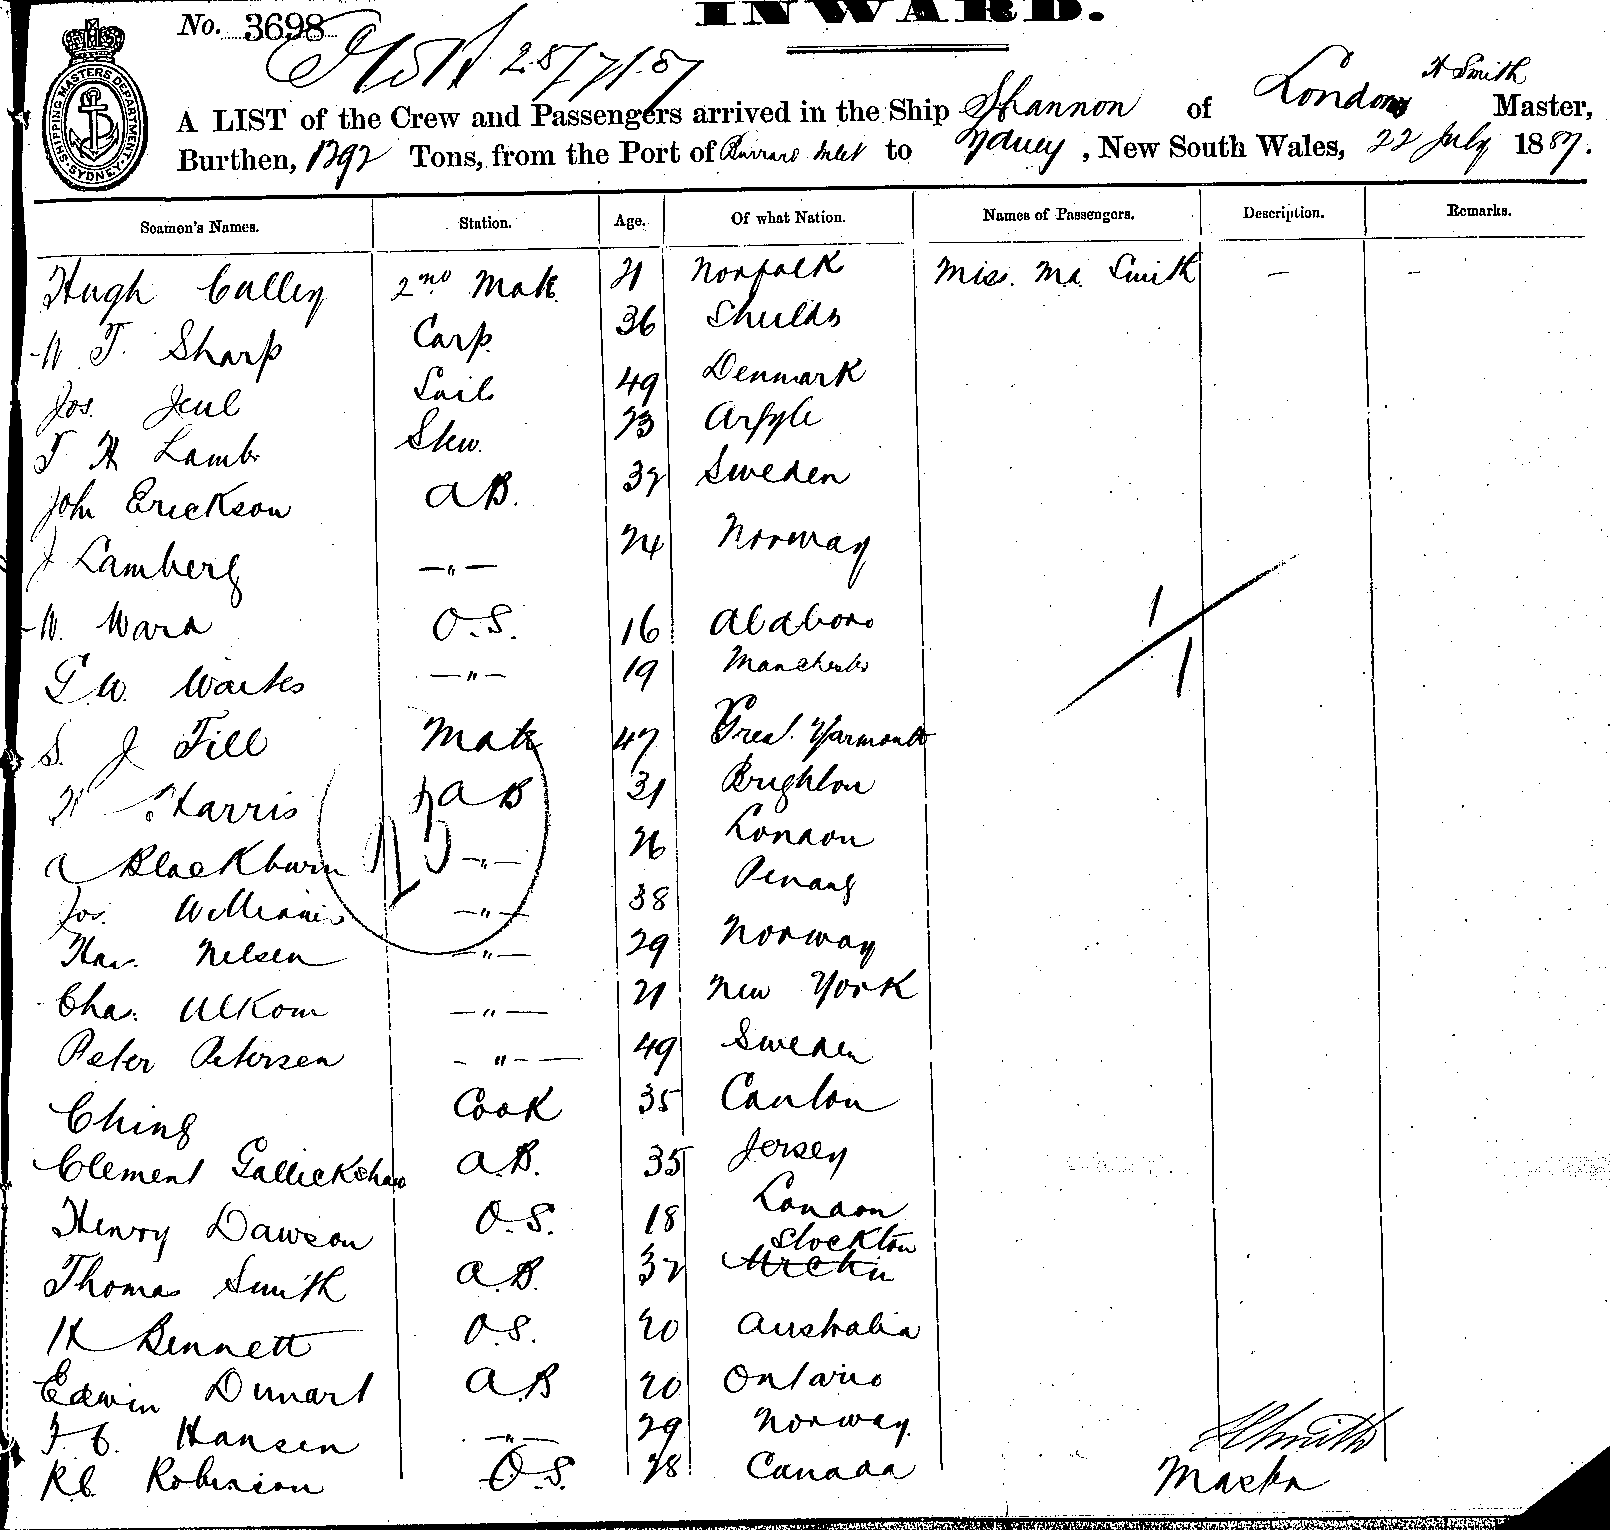 INWARD.
No. 3698
25/7/87
SHIPPING MASTERS DEPARTMENT. SYDNEY.
H Smith
A LIST of the Crew and Passengers arrived in the Ship Shannon of London Master,
Burthen, 1292 Tons, from the Port of Burrard Inlet to Sydney, New South Wales, 22 July 1887.
Seamen's Names. Station. Age. Of what Nation. Names of Passengers. Description. Remarks.
Hugh Culley 2nd Mate 21 Norfolk Miss. Ma. Smith — —
W T. Sharp Carp. 36 Shields
Jos. Sail 49 Denmark
T H Lamb Stew. 23 Argyle
John Erickson A B. 32 Sweden
J Lamberg —"— 24 Norway
W. Ward O.S. 16 1
G. W. Waites —"— 19 Manchester 1
S. J Till Mate 47 Great Yarmouth
H Harris A B 31 Brighton
A Blackburn —"— 26 London
Jos. Williams —"— 38 Penang
Nelsen —"— 29 Norway
Chas. Ulkom —"— 21 New York
Peter Petersen —"— 49 Sweden
Ching Cook 35 Canton
Clement Gallickshaw A.B. 35 Jersey
Henry Dawson O.S. 18 London
Stockton
Thomas Smith A.B. 32
H Bennett O.S. 20 Australia
Edwin A.B 20 Ontario
F. C. Hansen —"— 29 Norway
H Smith
R.C. Robinson O.S. 28 Canada Master